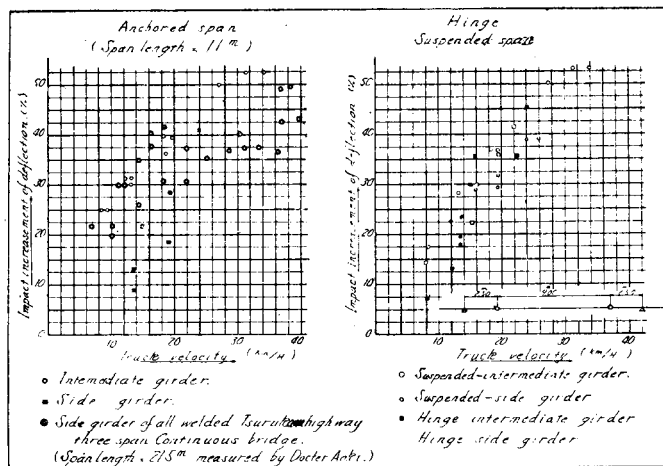 Anchored span
(Span length = 11 m)
Impact increasement of deflection (%)
50
40
30
20
10
0
10
20
30
40
Truck velocity (km/H)
o Intemediate girder.
▪ Side girder.
● Side girder of all welded highway
three span Continuous bridge.
(Span length = 21.5 m measured by Docter Aoki.)
Hinge
Suspended span
Impact increasement of deflection (%)
50
40
30
20
10
0
10
20
30
40
Truck velocity (km/H)
o Suspended-intermediate girder.
o Suspended-side girder
▪ Hinge intermediate girder
Hinge side girder